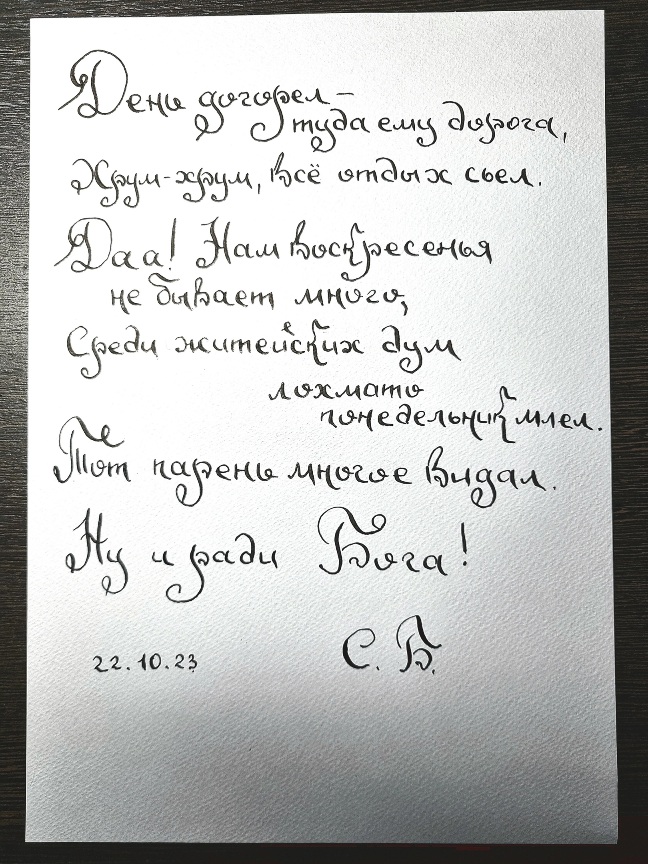 День догорел –
туда ему дорога,
Хрум-хрум, всё отдых съел.
Даа! Нам воскресенья
не бывает много,
Среди житейских дум
лохмато
понедельник млел.
Тот парень многое видал.
Ну и ради Бога!
22.10.23 С. Б.